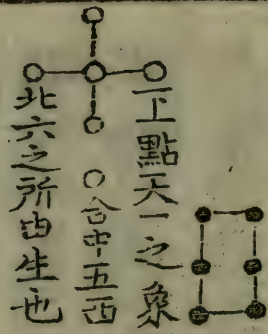 下點天一之象
○合中五西
北六之所由生也